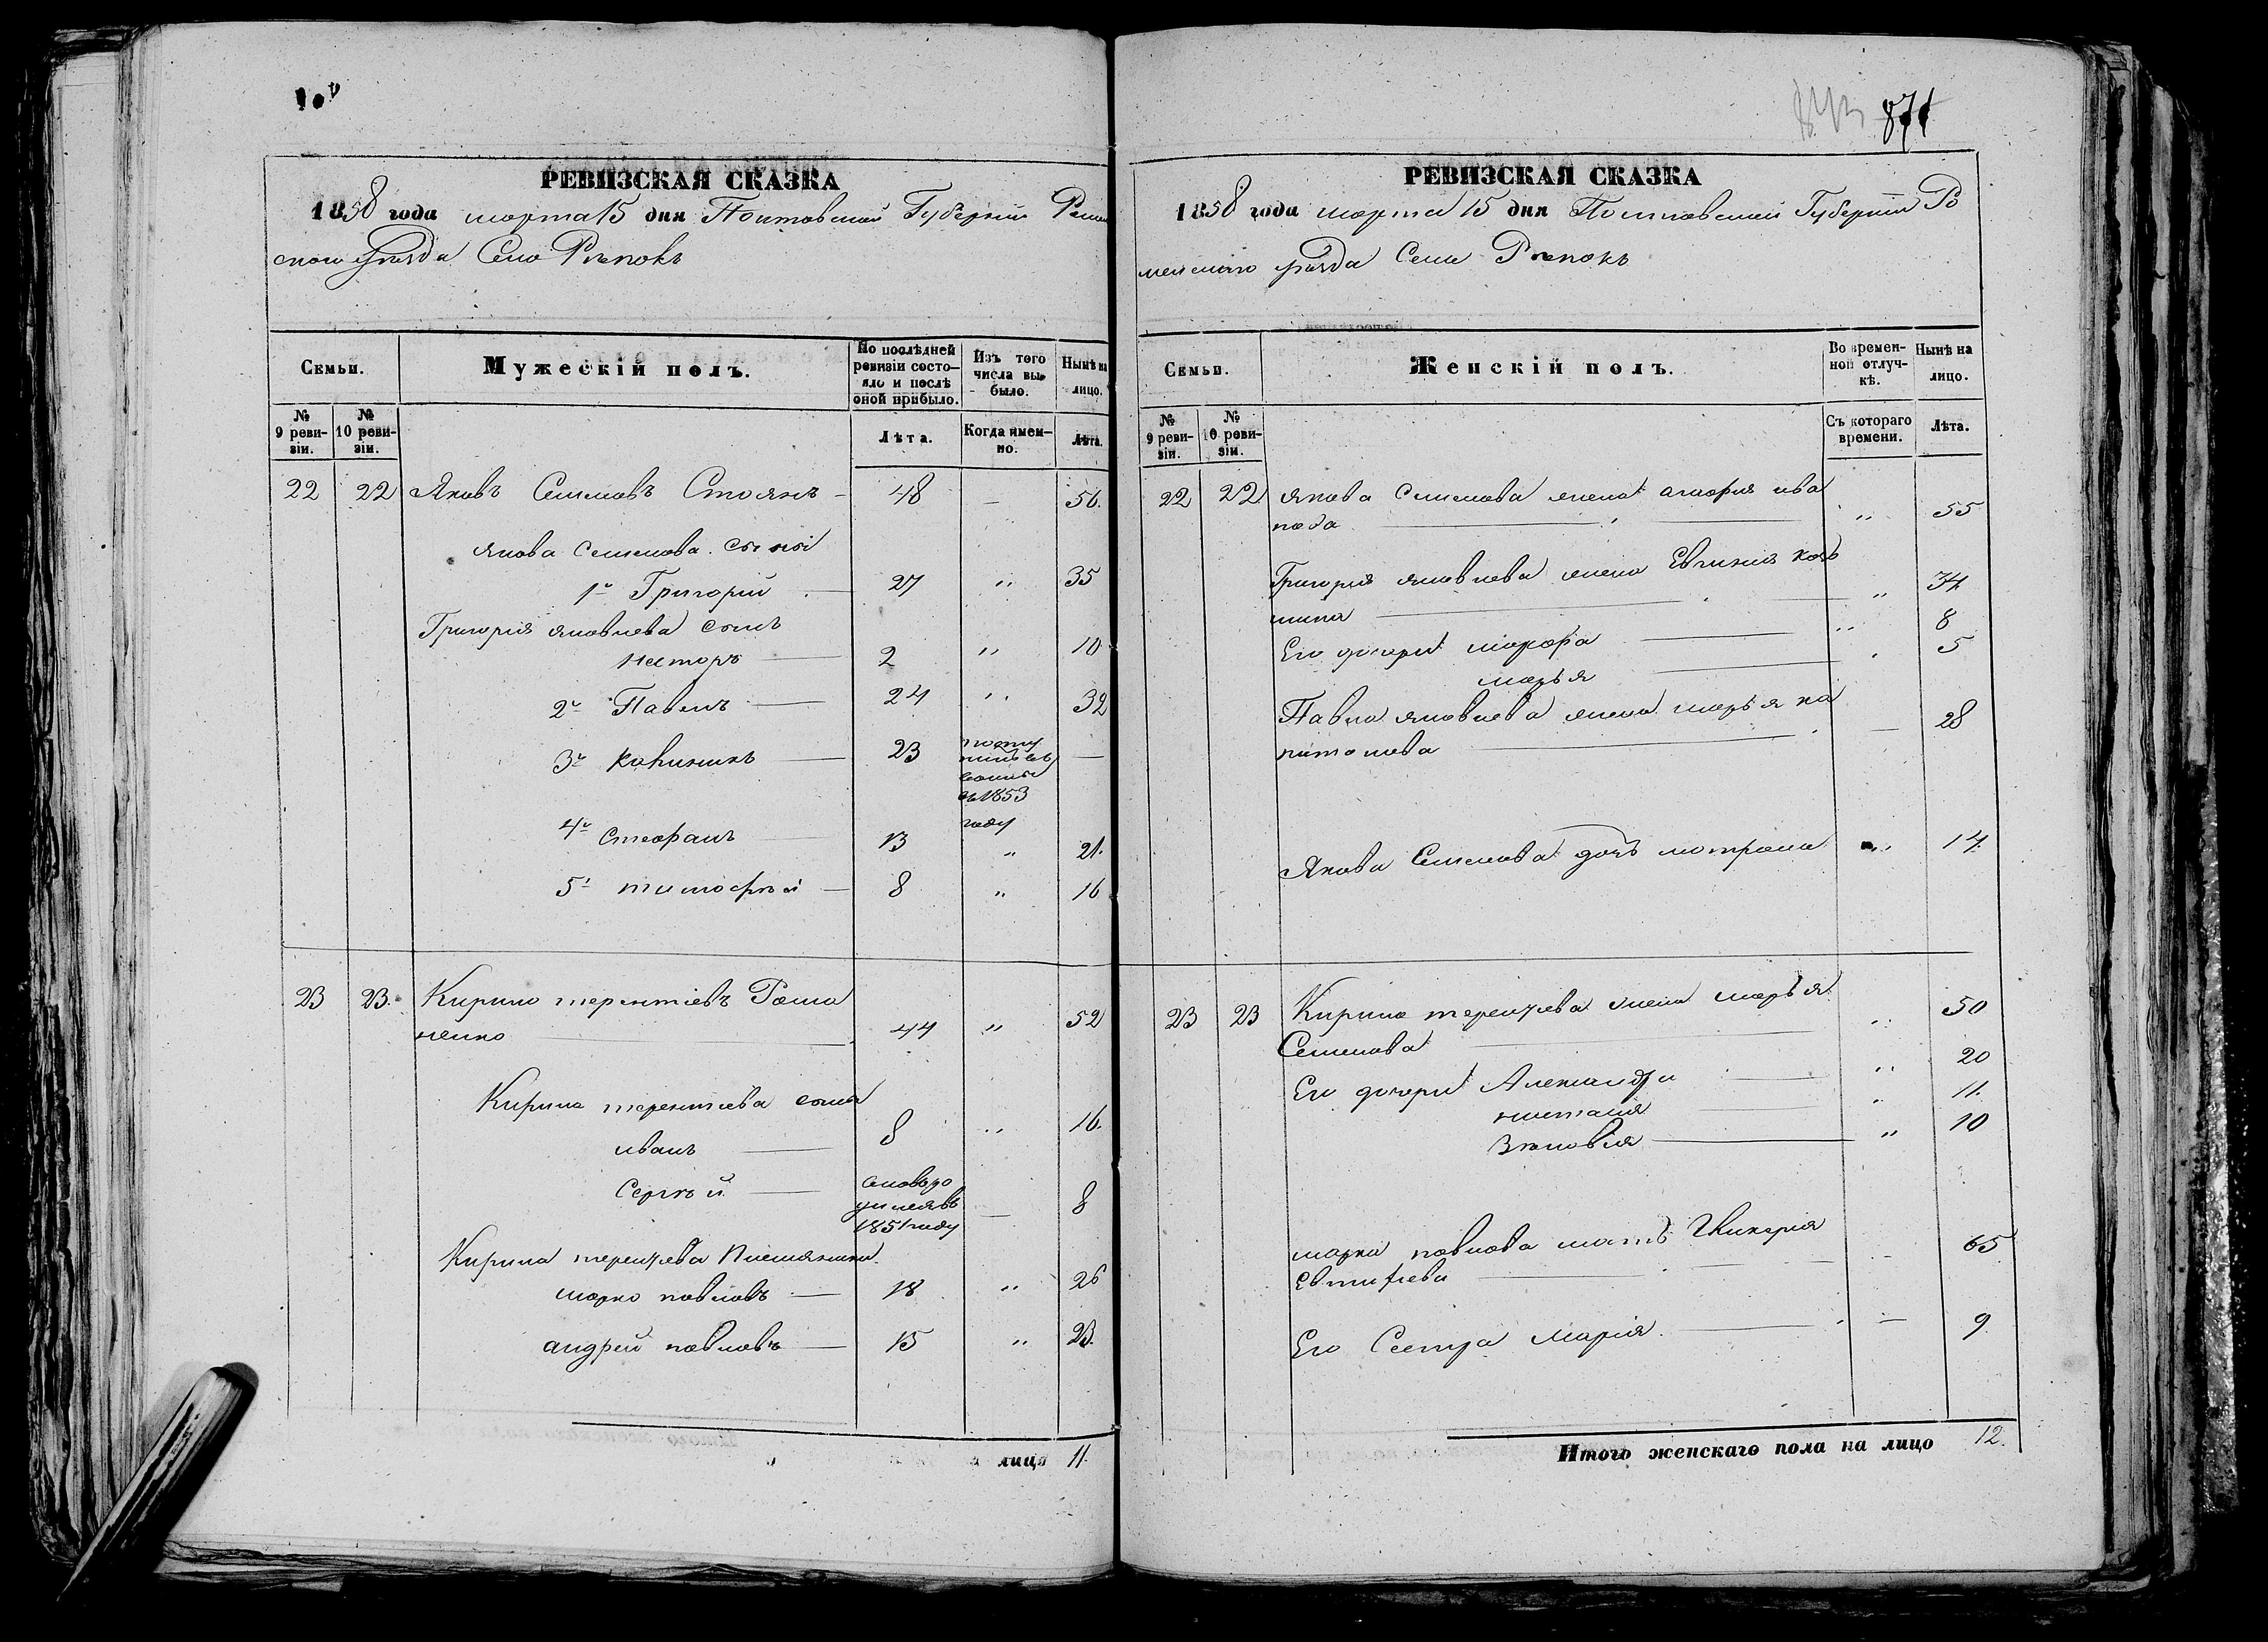 РЕВИЗСКАЯ СКАЗКА
1858 года марта 15 дня Полтавской Губернии Ромен
скаго уѣзда Село Рѣпокъ
Семьи.
Мужескій полъ.
По послѣдней ревизіи состо-
яло и послѣ оной прибыло.
Изъ того числа вы-
было.
Нынѣ на лицо.
№ 9 реви-
зіи.
№ 10 реви-
зіи.
Лѣта.
Когда имен-
но.
Лѣта.
22 22 Яковъ Семеновъ Стоянъ — 48 — 56.
Якова Семенова сыны
1й Григорій — 27 " 35
Григорія Яковлева сынъ
Несторъ — 2 " 10
2й Павелъ — 24 " 32
3й — 23 посту
пилъ въ
въ 1853
году —
4й Стефанъ — 13 " 21.
5й Тимофѣй — 8 " 16
23 23. Кирило Терентіевъ Рома
ненко — 44 " 52
Кирила Терентіева сыны
Иванъ — 8 " 16.
Сергѣй — сновъро
жденъ въ
1851 году — 8
Кирила Терентіева Племянники
Марко Павловъ — 18 " 26
Андрей Павловъ — 15 " 23.
лицо 11.
871
РЕВИЗСКАЯ СКАЗКА
1858 года марта 15 дня Полтавской Губерніи Ро
менскаго уѣзда Села Рѣпокъ
Семьи.
Женскій полъ.
Во времен-
ной отлуч-
кѣ.
Нынѣ на лицо.
№ 9 реви-
зіи.
№ 10 реви-
зіи.
Съ котораго времени.
Лѣта.
22 22 Якова Семенова жена ива
нова — " 55
Григорія Яковлева жена Евгенія Козь
мина — " 34
Его дочери Марфа — " 8
Марья — " 5
Павла Яковлева жена Марья ка
питонова — 28
Якова Семенова дочь Мотрона " 14
23 23 Кирила Терентіева жена Марья
Семенова — " 50
Его дочери Александра — " 20
Настасія — " 11.
Зѣновія — " 10
Марка Павлова мать Гликерія
Евтифіева — 65
Его Сестра Марія — 9
Итого женскаго пола на лицо 12.